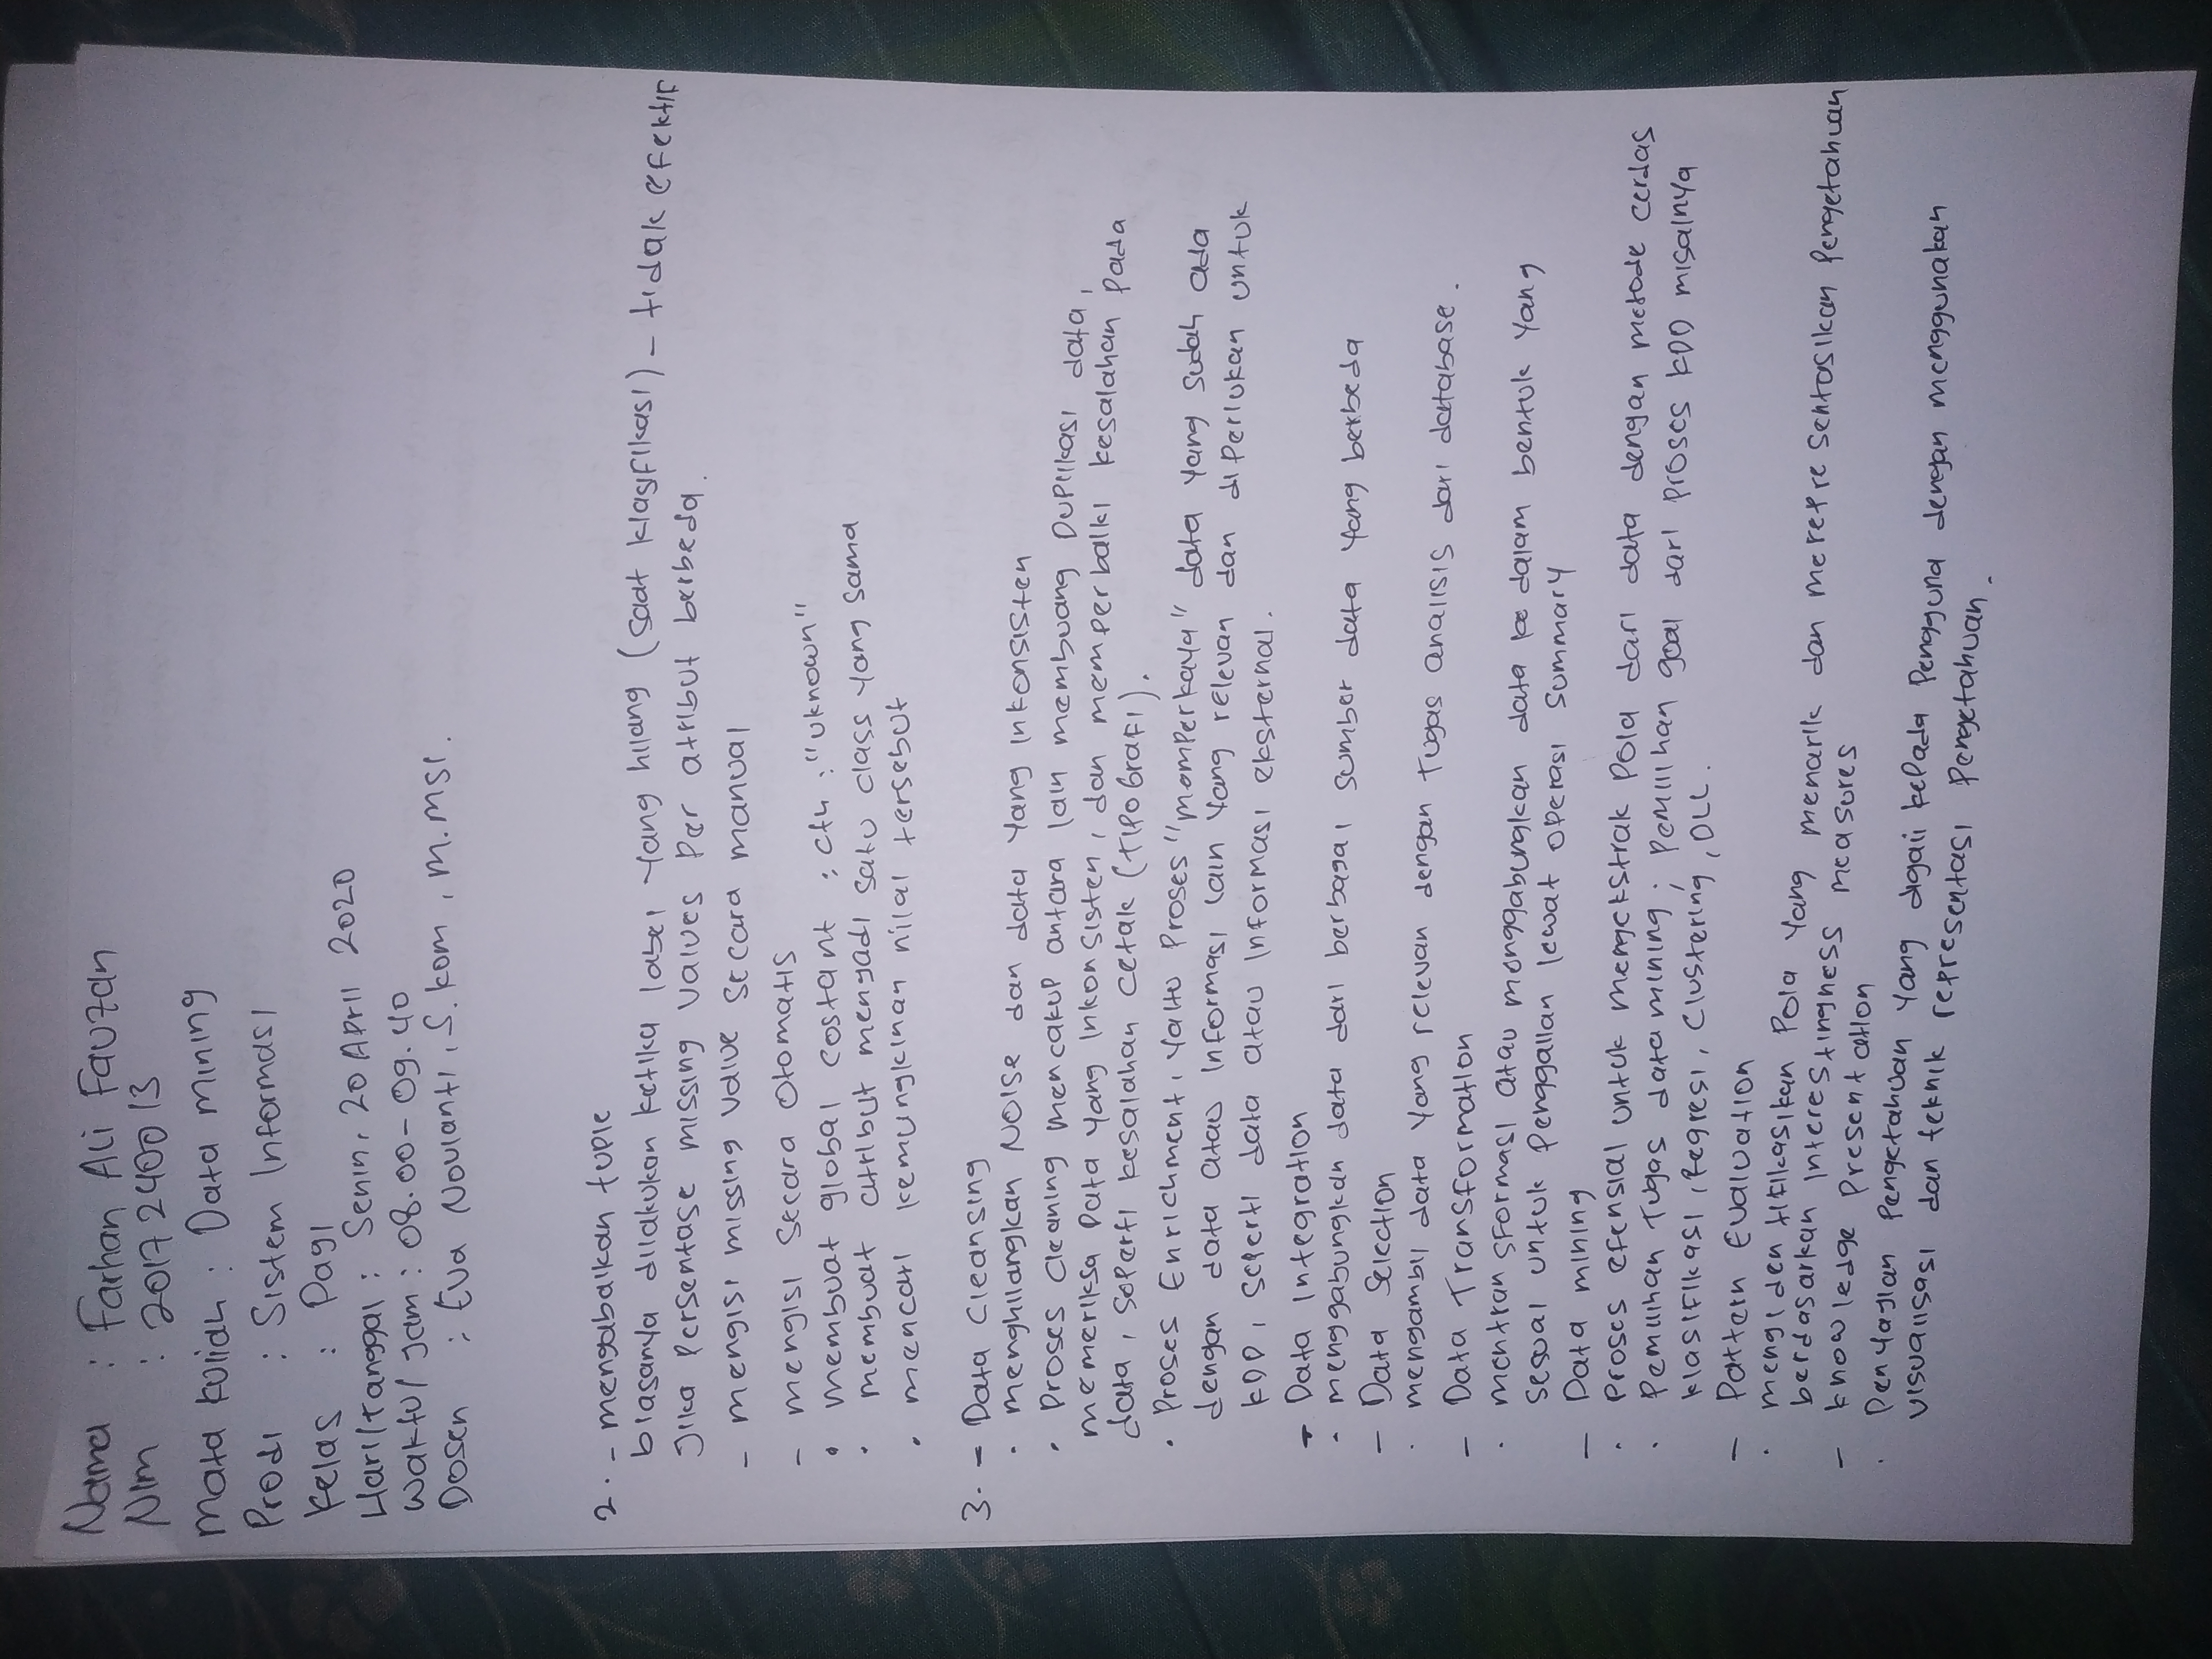 Nama : Farhan Ali Fauzan
Nim : 2017 2400 13
Mata kuliah : Data mining
Prodi : Sistem Informasi
Kelas : Pagi
Hari/tanggal : Senin, 20 April 2020
Waktu/Jam : 08.00-09.40
Dosen : Eva Novianti, S.kom, M.MSI.
2. - mengabaikan tuple
biasanya dilakukan ketika label yang hilang (saat klasifikasi) – tidak efektif
Jika persentase missing values per atribut berbeda.
- mengisi missing value secara manual
- mengisi secara otomatis
• membuat global costant : cth : "uknown"
• membuat attribut menjadi satu class yang sama
• mencari kemungkinan nilai tersebut
3. - Data cleansing
• menghilangkan Noise dan data yang inkonsisten
• Proses cleaning mencakup antara lain membuang Duplikasi data,
memeriksa Data yang Inkonsisten, dan memperbaiki kesalahan pada
data, seperti kesalahan cetak (tipografi).
• Proses Enrichment, yaitu proses "memperkaya" data yang sudah ada
dengan data atau informasi lain yang relevan dan diperlukan untuk
KDD, seperti data atau informasi eksternal.
- Data Integration
• menggabungkan data dari berbagai sumber data yang berbeda
- Data Selection
• mengambi data yang relevan dengan tugas analisis dari database.
- Data Transformation
• mentransformasi atau menggabungkan data ke dalam bentuk yang
sesuai untuk penggalian lewat operasi summary
- Data mining
• Proses efensial untuk mengekstrak pola dari data dengan metode cerdas
• Pemilihan tugas data mining ; Pemilihan goal dari proses KDD misalnya
klasifikasi, regresi, clustering, DLL.
- Pattern Evaluation
• mengidentifikasikan Pola yang menarik dan merepresentasikan pengetahuan
berdasarkan interestingness measures
- knowledge presentation
• Penyajian Pengetahuan yang digali kepada Pengguna dengan menggunakan
visualisasi dan teknik representasi pengetahuan.